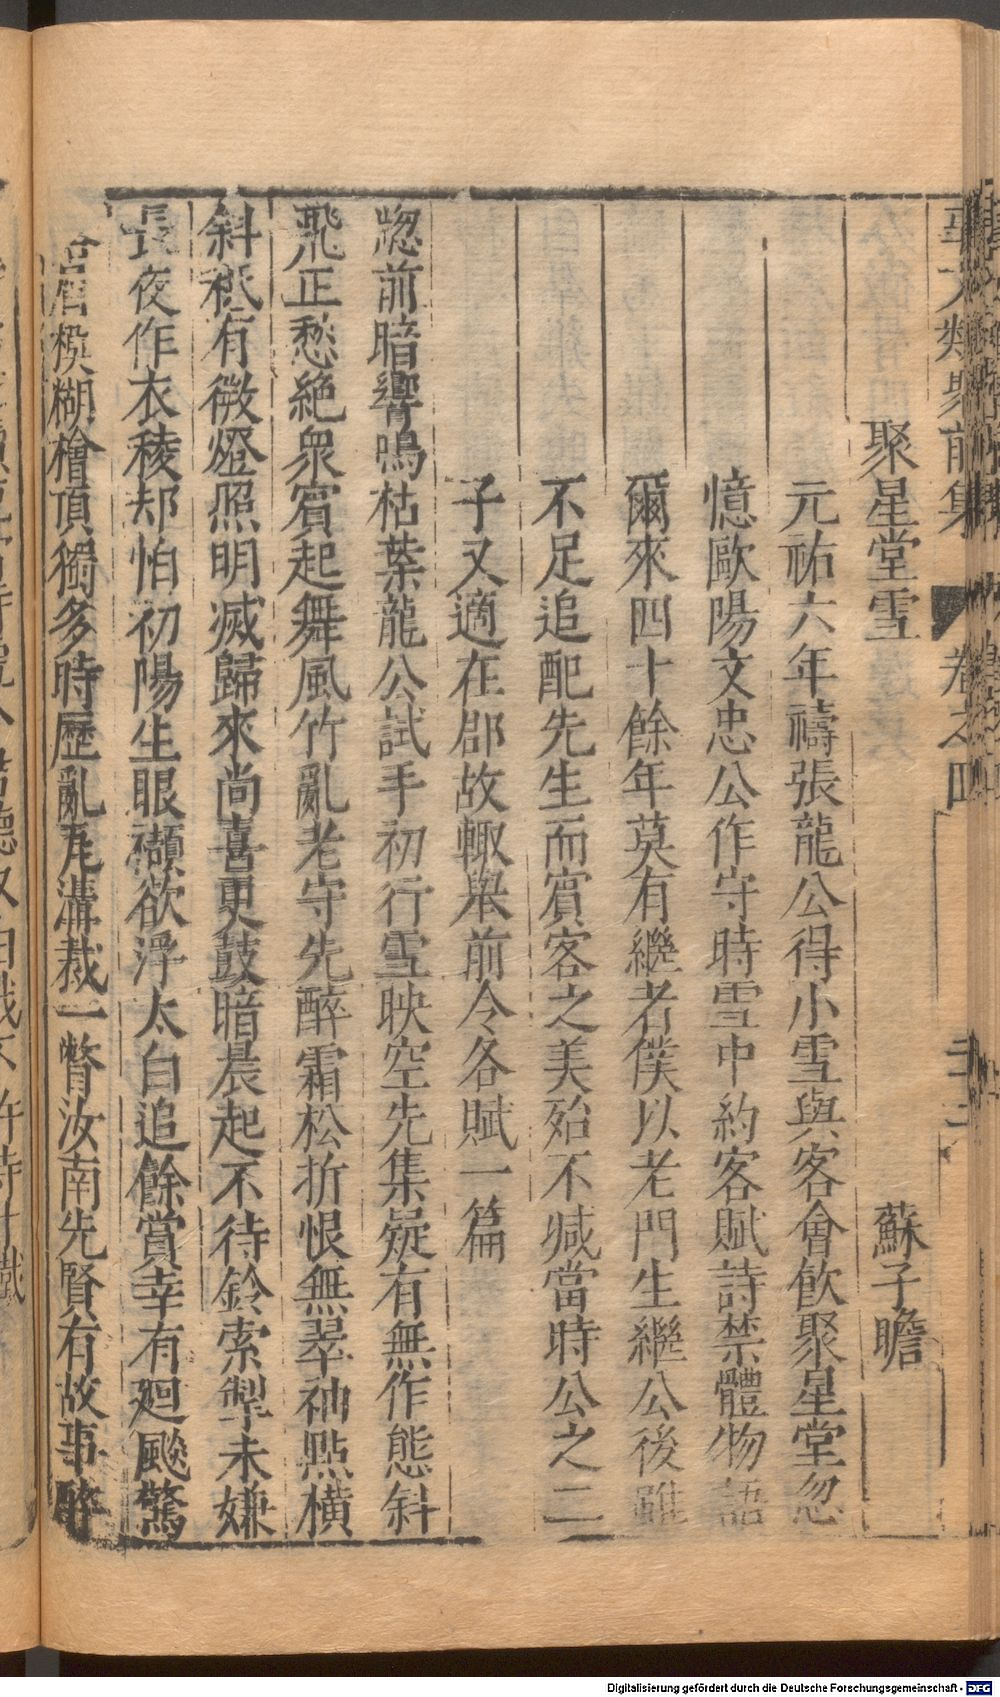 事文類聚前集 卷之四
聚星堂雪 蘇子瞻
元祐六年禱張龍公得小雪與客會飲聚星堂忽
憶歐陽文忠公作守時雪中約客賦詩禁體物語
爾來四十餘年莫有繼者僕以老門生繼公後雖
不足追配先生而賓客之美殆不減當時公之二
子又適在郡故輙舉前令各賦一篇
窓前暗響鳴枯葉龍公試手初行雪映空先集疑有無作態斜
飛正愁絶衆賓起舞風竹亂老守先醉霜松折恨無翠袖點橫
斜秪有微燈照明滅歸來尚喜更鼓暗晨起不待鈴索掣未嫌
長夜作衣稜却怕初陽生眼纈欲浮太白追餘賞幸有廻飈驚
落屑模糊檜頂獨多時歷亂瓦溝裁一瞥汝南先賢有故事醉
Digitalisierung gefördert durch die Deutsche Forschungsgemeinschaft - DFG